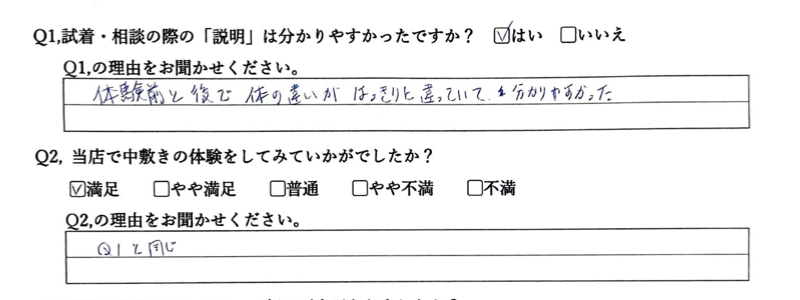 Q1,試着・相談の際の「説明」は分かりやすかったですか? ☑はい □いいえ
Q1,の理由をお聞かせください。
体験前と後で 体の違いが はっきりと違っていて、分かりやすかった
Q2, 当店で中敷きの体験をしてみていかがでしたか?
☑満足 □やや満足 □普通 □やや不満 □不満
Q2,の理由をお聞かせください。
Q1と同じ